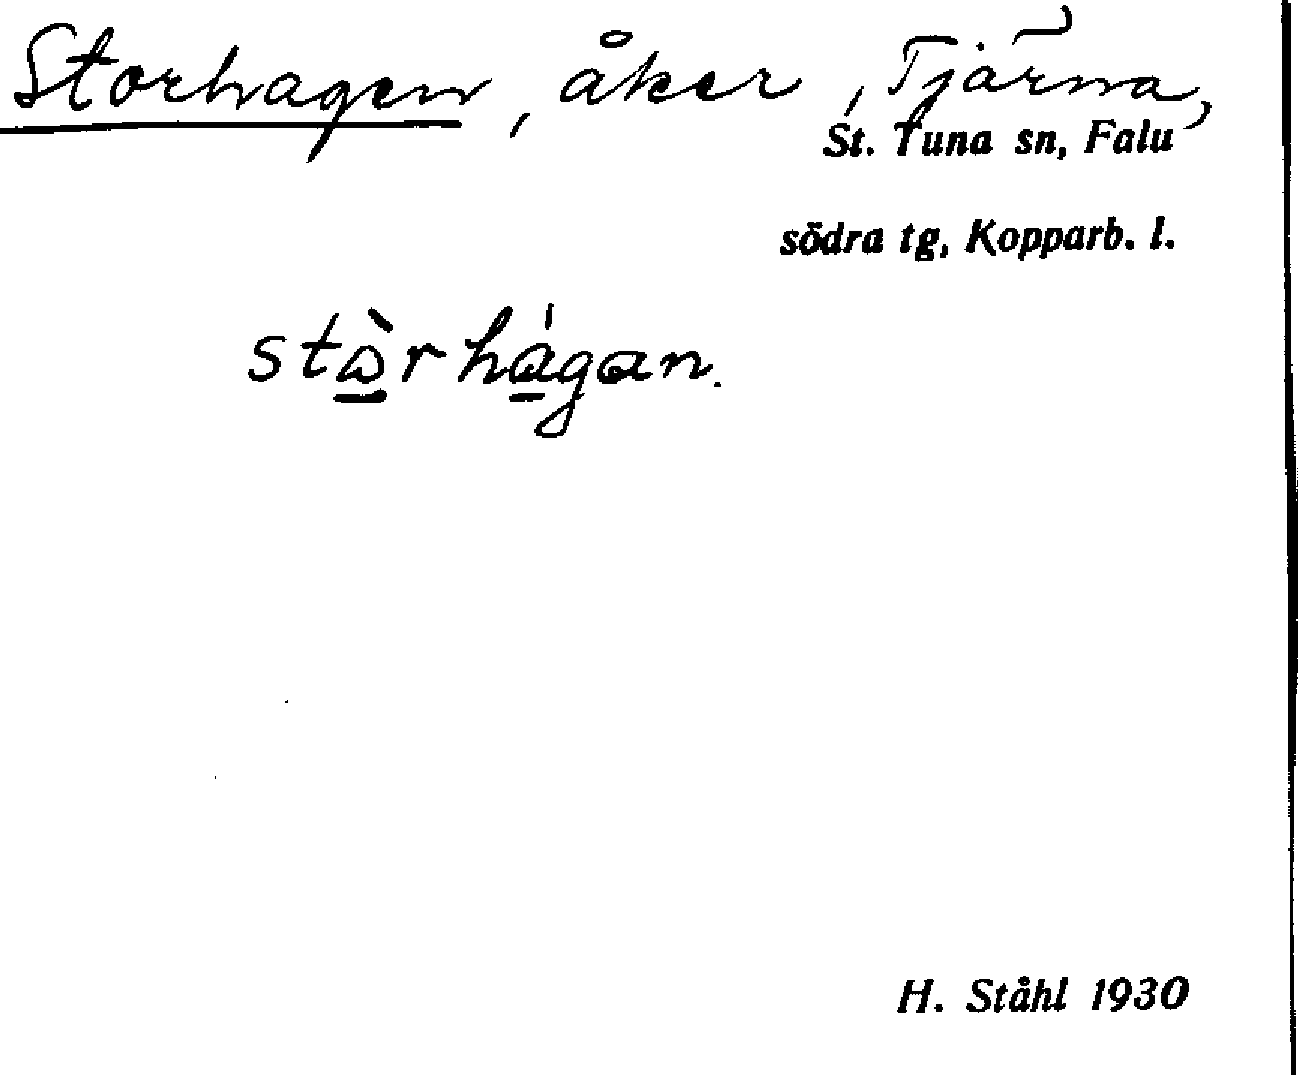 Storhagen, åker, Tjärna,
St. Tuna sn, Falu
södra tg, Kopparb. l.
stὼ̲rha̲̍gan.
H. Ståhl 1930